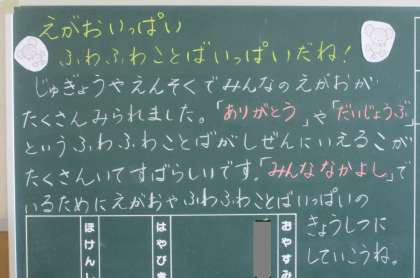 えがおいっぱい
ふわふわことばいっぱいだね!
じゅぎょうやえんそくでみんなのえがおが
たくさんみられました。「ありがとう」や「だいじょうぶ」
というふわふわことばがしぜんにいえるこが
たくさんいてすばらしいです。「みんななかよし」で
いるためにえがおやふわふわことばいっぱいの
きょうしつに
していこうね。
おやすみ
はやびき
ほけんし